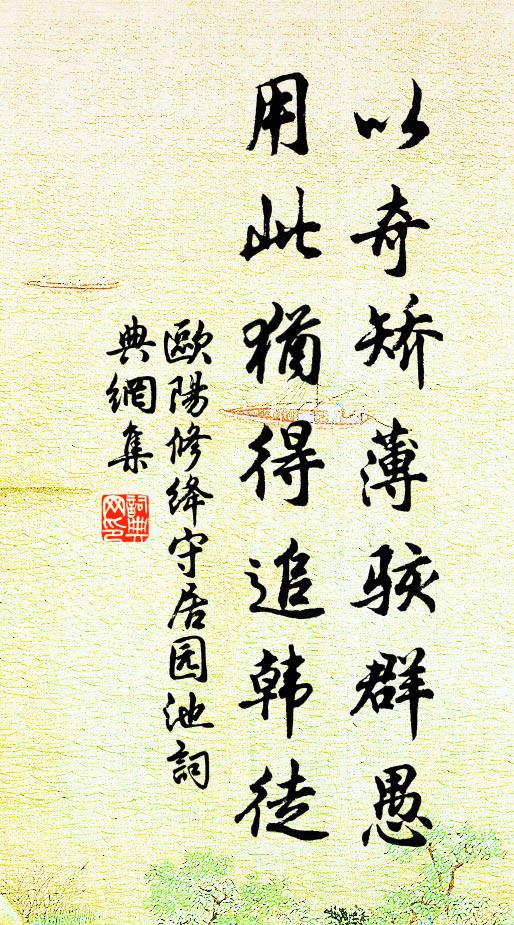 以奇矫薄骇群愚
用此猶得追韩徒
歐陽修绛守居园池詞
典網集
詞典
网印